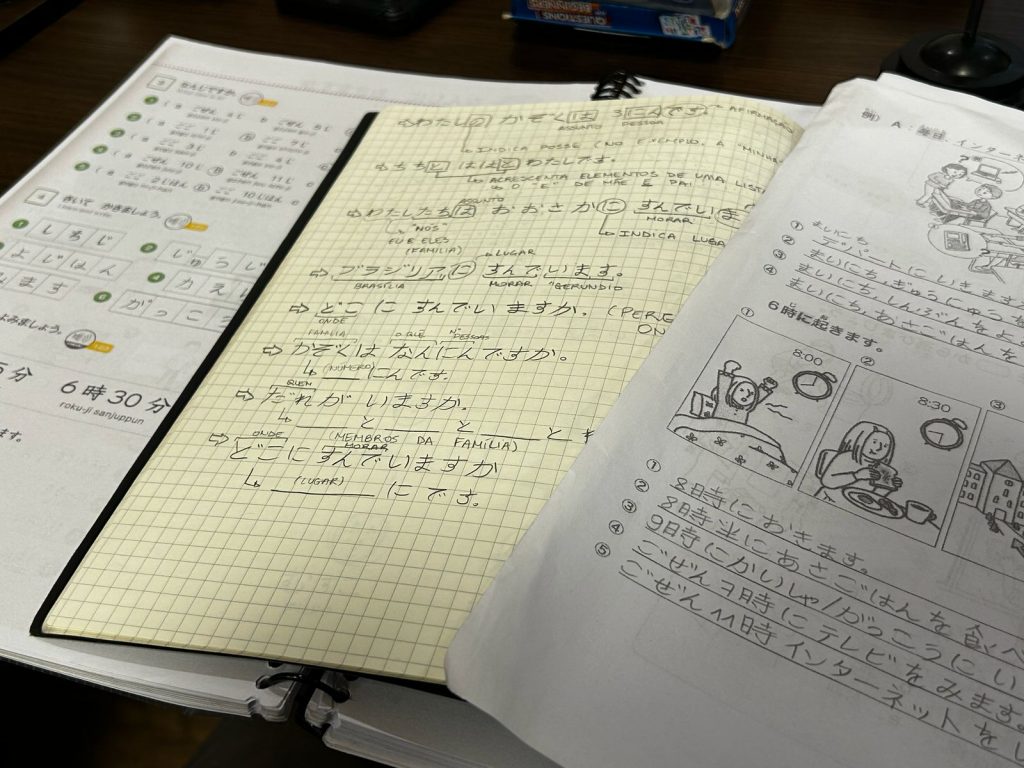 QUESTIONS
BEGINNERS
3 なんじですか。
4 きいて かきましょう。
しちじ
じゅうじ
よじはん
かえ
ます
がっこう
よみましょう。
5分 6時30分
roku-ji sanjuppun
ます。
⇨わたしの かぞくは 3にんです。 AFIRMAÇÃO
ASSUNTO PESSOA
↳ INDICA POSSE (NO EXEMPLO, A "MINHA
⇨ちちと ははと わたしです。
↳ ACRESCENTA ELEMENTOS DE UMA LISTA
↳ O "E" DE MÃE E PAI
ASSUNTO
⇨わたしたちは おおさかに すんでいま
↳ "NÓS" MORAR
EU E ELES ↳ INDICA LUGA
(FAMÍLIA) ↳ LUGAR
⇨ ブラジリアに すんでいます。
BRASÍLIA MORAR "GERÚNDIO
⇨ どこ に すんでいますか。
ONDE
FAMÍLIA O QUE Nº PESSOAS
⇨ かぞくは なんにんですか。
↳ (NÚMERO) にんです。
QUEM
⇨ だれが いますか。
↳ と と と
(MEMBROS DA FAMÍLIA)
ONDE MORAR
⇨ どこに すんでいますか
↳ (LUGAR) に です。
例) A: 毎日、インターネ
まいにち
① デパートにいきます
② まいにち、ぎゅうにゅうを
③ まいにち、しんぶんをよ
④ まいにち、あさごはんを
6時に起きます。
① 8:00
② 8:30
③
① 8時におきます。
② 8時半にあさごはんを食べ
③ 9時にかいしゃ/がっこうにい
④ ごぜん 7時にテレビをみます。
⑤ ごぜん 11時インターネットをし